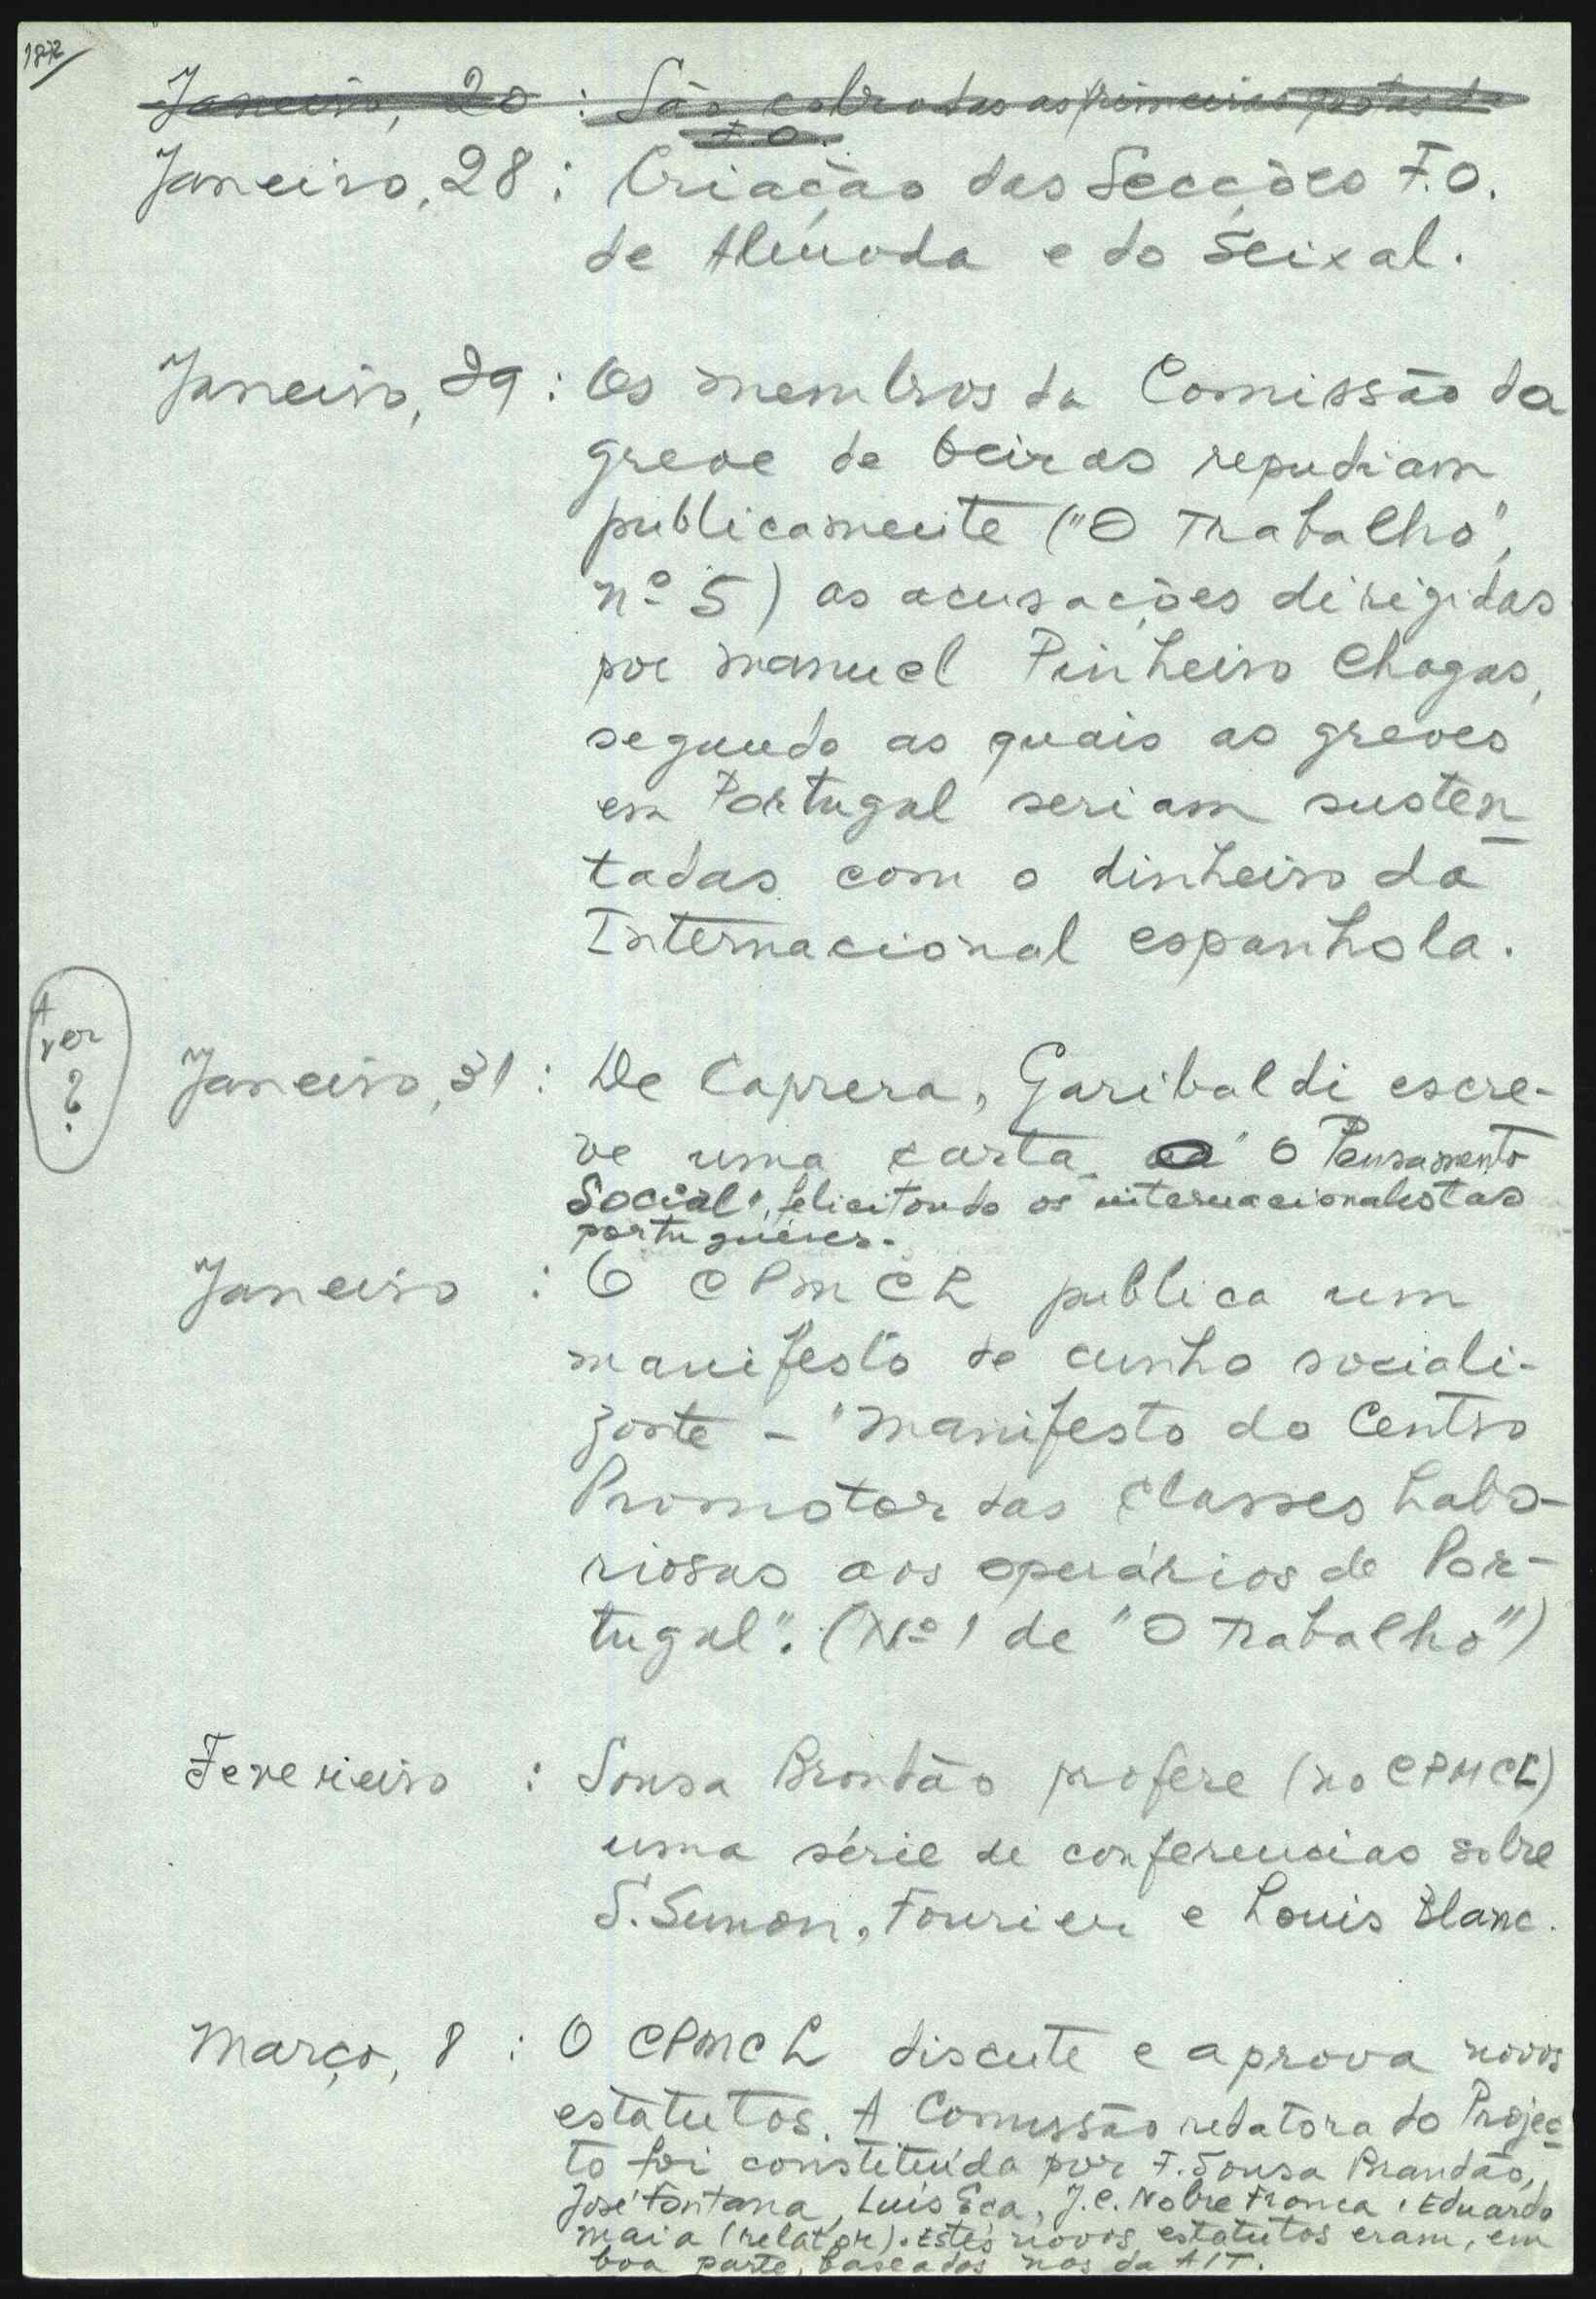 1872
Janeiro, 20 : São cobradas as primeiras quotas da
F.O.
Janeiro, 28 : Criação das Secções F.O.
de Almada e do Seixal.
Janeiro, 29 : Os membros da Comissão da
greve de Oeiras repudiam
publicamente ("O Trabalho",
nº 5) as acusações dirigidas
por Manuel Pinheiro Chagas,
segundo as quais as greves
em Portugal seriam susten-
tadas com o dinheiro da
Internacional espanhola.
A
ver
?
Janeiro, 31 : De Caprera, Garibaldi escre-
ve uma carta a "O Pensamento
Social", felicitando os internacionalistas
portugueses.
Janeiro : O CPMCL publica um
manifesto de cunho sociali-
zante - "Manifesto do Centro
Promotor das Classes Labo-
riosas aos operários de Por-
tugal". (Nº 1 de "O Trabalho")
Fevereiro : Sousa Brandão profere (no CPMCL)
uma série de conferencias sobre
S. Simon, Fourier e Louis Blanc.
Março, 8 : O CPMCL discute e aprova novos
estatutos. A Comissão redatora do Projec-
to foi constituída por F. Sousa Brandão,
José Fontana, Luís Eça, J.C. Nobre França, Eduardo
Maia (relator). Estes novos estatutos eram, em
boa parte, baseados nos da AIT.